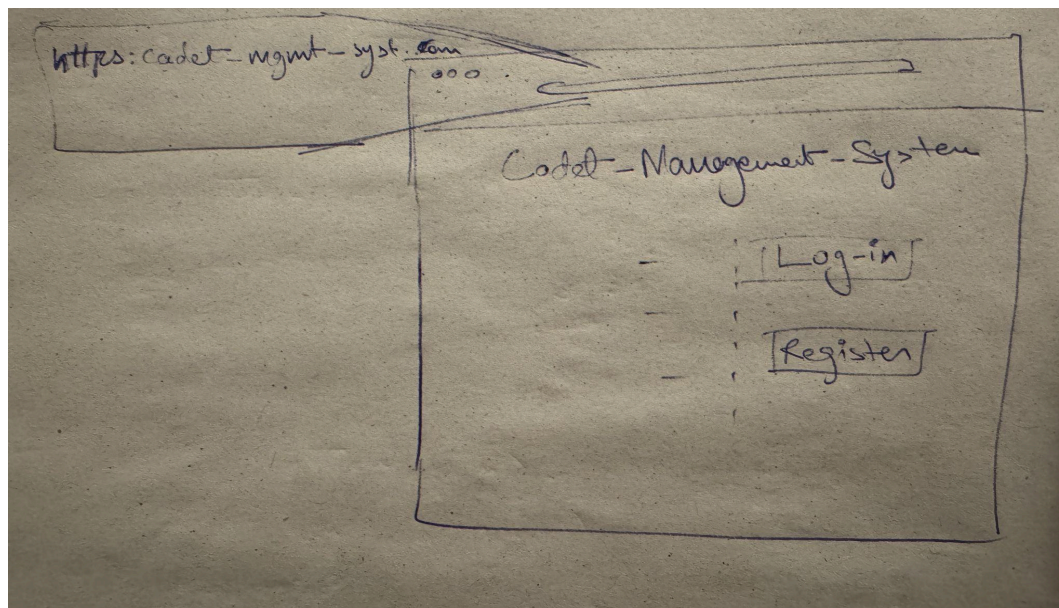 https:cadet-mgmt-syst.com
Cadet-Management-System
Log-in
Register